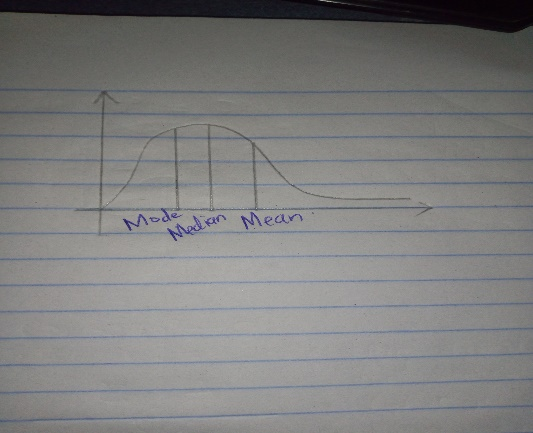 Mode Median Mean